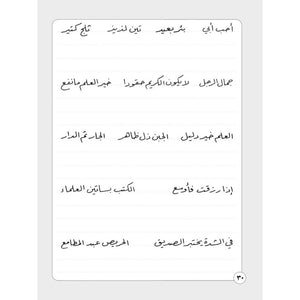 أحب أبي بئر بعيد تين لذيذ ثلج كثير
جمال الرجل لا يكون الكريم حقودا خير العلم ما نفع
العلم خير دليل الجبن ذل ظاهر الجار ثم الدار
إذا رزقت فأوسع الكتب بساتين العلماء
في الشدة يختبر الصديق الحريص عبد المطامع
٣٠